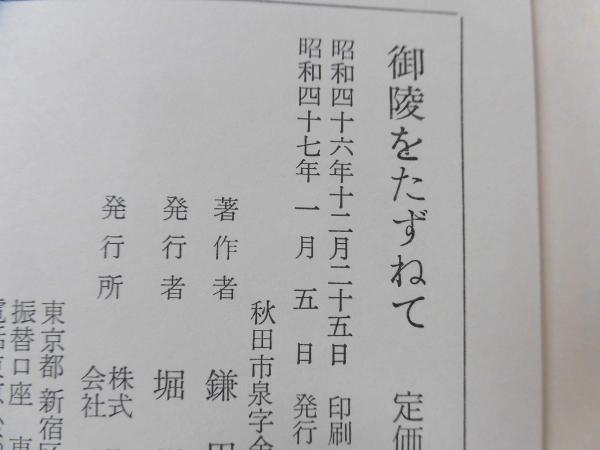 御陵をたずねて 定価
昭和四十六年十二月二十五日 印刷
昭和四十七年 一月 五 日 発行
秋田市泉字金
著作者 鎌田
発行者 堀
発行所 株式会社
東京都 新宿区
振替口座 東
電話東京